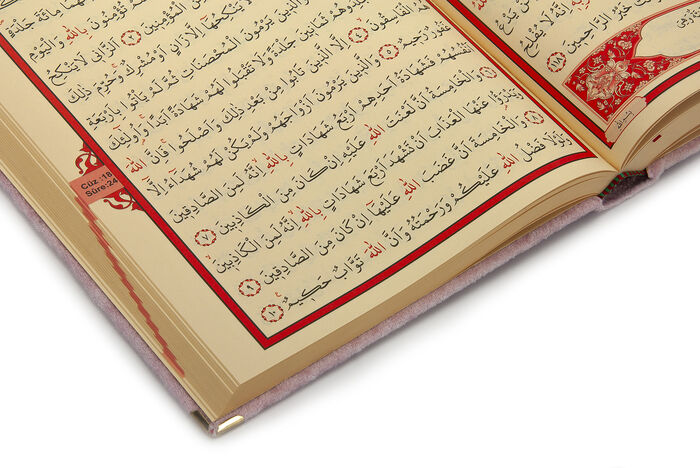 مِائَةَ جَلْدَةٍ
بِاللّٰهِ وَالْيَوْمِ
مِنَ الْمُؤْمِنِينَ ﴿٢﴾ اَلزَّانِي لَا يَنْكِحُ
يَنْكِحُهَا اِلَّا زَانٍ اَوْ مُشْرِكٌ وَحُرِّمَ ذٰلِكَ
وَالَّذِينَ يَرْمُونَ الْمُحْصَنَاتِ ثُمَّ لَمْ يَأْتُوا بِاَرْبَعَةِ
ثَمَانِينَ جَلْدَةً وَلَا تَقْبَلُوا لَهُمْ شَهَادَةً اَبَدًا وَاُولٰٓئِكَ
الْفَاسِقُونَ ﴿٤﴾ اِلَّا الَّذِينَ تَابُوا مِنْ بَعْدِ ذٰلِكَ وَاَصْلَحُوا فَاِنَّ اللّٰهَ
غَفُورٌ رَحِيمٌ ﴿٥﴾ وَالَّذِينَ يَرْمُونَ اَزْوَاجَهُمْ وَلَمْ يَكُنْ لَهُمْ شُهَدَٓاءُ اِلَّٓا
اَنْفُسُهُمْ فَشَهَادَةُ اَحَدِهِمْ اَرْبَعُ شَهَادَاتٍ بِاللّٰهِ اِنَّهُ لَمِنَ الصَّادِقِينَ
﴿٦﴾ وَالْخَامِسَةُ اَنَّ لَعْنَتَ اللّٰهِ عَلَيْهِ اِنْ كَانَ مِنَ الْكَاذِبِينَ ﴿٧﴾
وَيَدْرَؤُا عَنْهَا الْعَذَابَ اَنْ تَشْهَدَ اَرْبَعَ شَهَادَاتٍ بِاللّٰهِ اِنَّهُ لَمِنَ الْكَاذِبِينَ
﴿٨﴾ وَالْخَامِسَةَ اَنَّ غَضَبَ اللّٰهِ عَلَيْهَٓا اِنْ كَانَ مِنَ الصَّادِقِينَ ﴿٩﴾
وَلَوْلَا فَضْلُ اللّٰهِ عَلَيْكُمْ وَرَحْمَتُهُ وَاَنَّ اللّٰهَ تَوَّابٌ حَكِيمٌ ﴿١٠﴾
Cüz :18
Sûre:24
لَا يُفْلِحُ
خَيْرُ الرَّاحِمِينَ ﴿١١٨﴾